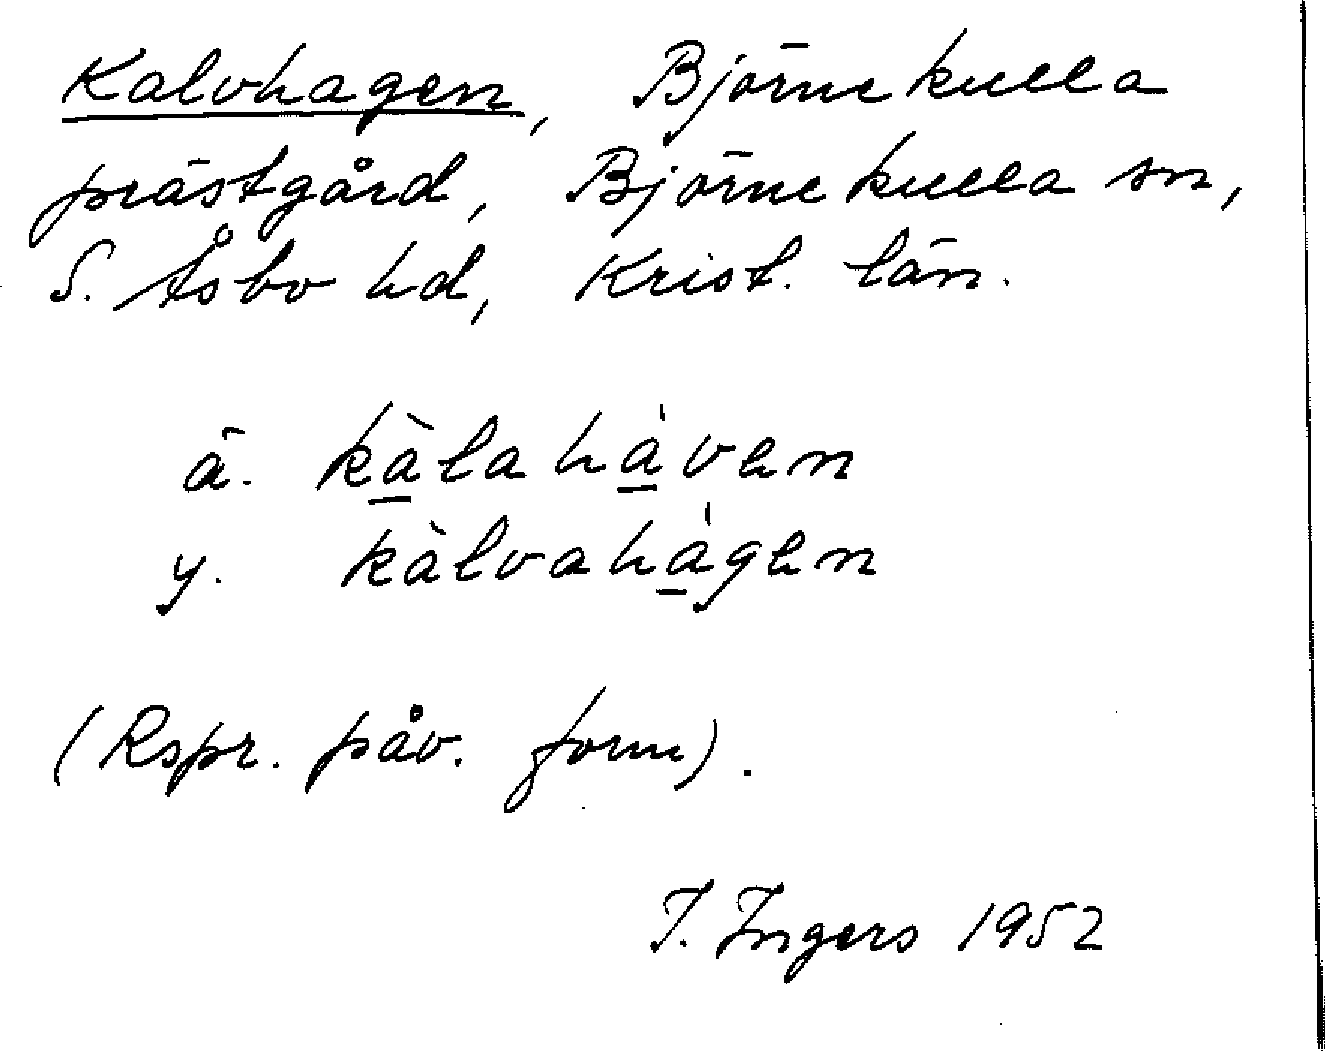 Kalvhagen, Björnekulla
prästgård, Björnekulla sn,
S. Åsbo hd, Krist. län.
ä. kà̱laha̱̍ven
y. kàlvaha̱̍gen
(Rspr. påv. form).
I. Ingers 1952